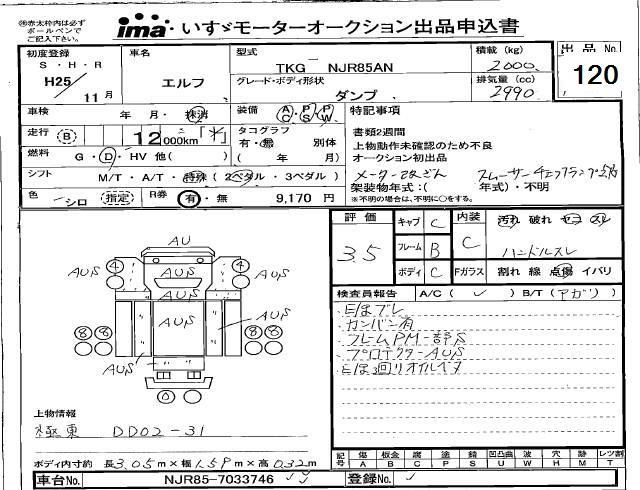 ㊟赤太枠内は必ず
ボールペンで
ご記入下さい。
ima いすゞモーターオークション出品申込書
初度登録
S・H・R
H25/11月
車名
エルフ
型式
TKG NJR85AN
グレード・ボディ形状
ダンプ
積載 (kg)
2000
排気量 (cc)
2990
出品 No.
120
車検
年 月・抹消
装備
AC PS PW
走行
B
12000km「*」
タコグラフ
有・無 別体
( 年 月)
燃料
G・D・HV 他( )
特記事項
書類2週間
上物動作未確認のため不良
オークション初出品
架装物年式:( 年式)・不明
※不明の場合は、不明に○をする。
シフト
M/T・A/T・特殊 (2ペダル・3ペダル)
色
シロ (指定)
R券
有・無 9,170 円
評価
3.5
キャブ C
フレーム B
ボディ C
内装
C
Fガラス
汚れ 破れ コゲ スレ
ハンドルスレ
割れ 線 点傷 イバリ
検査員報告 A/C( ✓ ) B/T(アガリ)
カンバン有
プロテクターAUS
AU
AUS
AUS
AUS
AUS
AUS
AUS
4
4
8 8
8 8
0
上物情報
極東 DD02-31
ボディ内寸約 長3.05m×幅1.59m×高0.32m
記号
傷 A
板金 B
腐 C
塗 P
錆 S
凹凸曲 U
波 W
穴 H
跡 M
レツ割 T
車台No. NJR85-7033746
登録No.